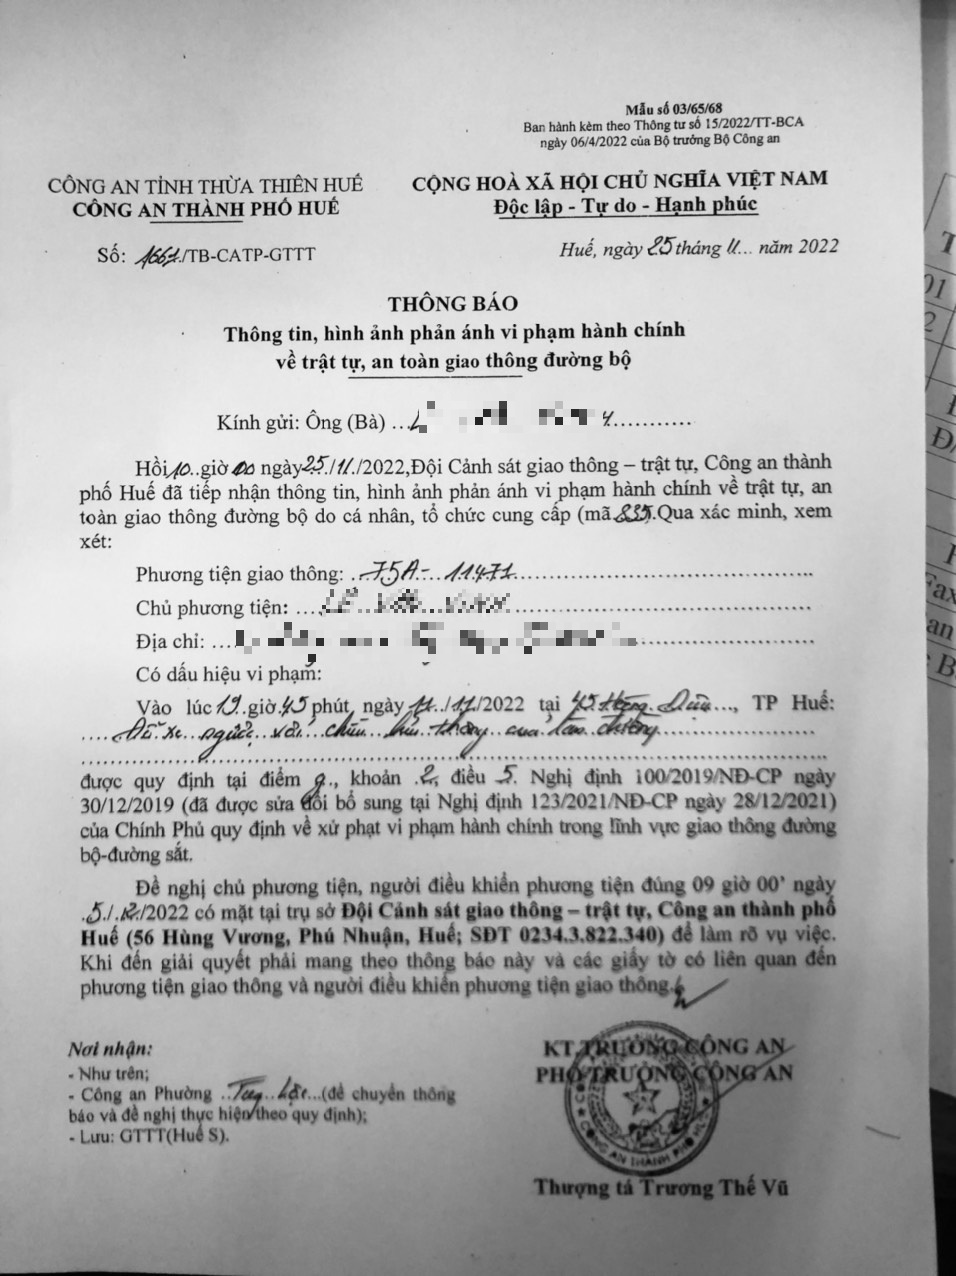 Mẫu số 03/65/68
Ban hành kèm theo Thông tư số 15/2022/TT-BCA
ngày 06/4/2022 của Bộ trưởng Bộ Công an
CÔNG AN TỈNH THỪA THIÊN HUẾ
CÔNG AN THÀNH PHỐ HUẾ
Số: 1661/TB-CATP-GTTT
CỘNG HOÀ XÃ HỘI CHỦ NGHĨA VIỆT NAM
Độc lập - Tự do - Hạnh phúc
Huế, ngày 25 tháng 11... năm 2022
THÔNG BÁO
Thông tin, hình ảnh phản ánh vi phạm hành chính
về trật tự, an toàn giao thông đường bộ
Kính gửi: Ông (Bà) ...
Hồi 10..giờ 00 ngày 25./11./2022,Đội Cảnh sát giao thông – trật tự, Công an thành
phố Huế đã tiếp nhận thông tin, hình ảnh phản ánh vi phạm hành chính về trật tự, an
toàn giao thông đường bộ do cá nhân, tổ chức cung cấp (mã 835).Qua xác minh, xem
xét:
Phương tiện giao thông: ..75A-...11471...
Chủ phương tiện: ...
Địa chỉ: ...
Có dấu hiệu vi phạm:
Vào lúc 19.giờ.45 phút, ngày 11../11/2022 tại 45 Hùng..., TP Huế:
Đỗ xe ngược với chiều lưu thông của làn đường
được quy định tại điểm g., khoản .2, điều 5. Nghị định 100/2019/NĐ-CP ngày
30/12/2019 (đã được sửa đổi bổ sung tại Nghị định 123/2021/NĐ-CP ngày 28/12/2021)
của Chính Phủ quy định về xử phạt vi phạm hành chính trong lĩnh vực giao thông đường
bộ-đường sắt.
Đề nghị chủ phương tiện, người điều khiển phương tiện đúng 09 giờ 00’ ngày
.5./.12./2022 có mặt tại trụ sở Đội Cảnh sát giao thông – trật tự, Công an thành phố
Huế (56 Hùng Vương, Phú Nhuận, Huế; SĐT 0234.3.822.340) để làm rõ vụ việc.
Khi đến giải quyết phải mang theo thông báo này và các giấy tờ có liên quan đến
phương tiện giao thông và người điều khiển phương tiện giao thông.
Nơi nhận:
- Như trên;
- Công an Phường ..Tây Lộc...(để chuyển thông
báo và đề nghị thực hiện theo quy định);
- Lưu: GTTT(Huế S).
KT.TRƯỞNG CÔNG AN
PHÓ TRƯỞNG CÔNG AN
CÔNG AN THÀNH PHỐ HUẾ
Thượng tá Trương Thế Vũ